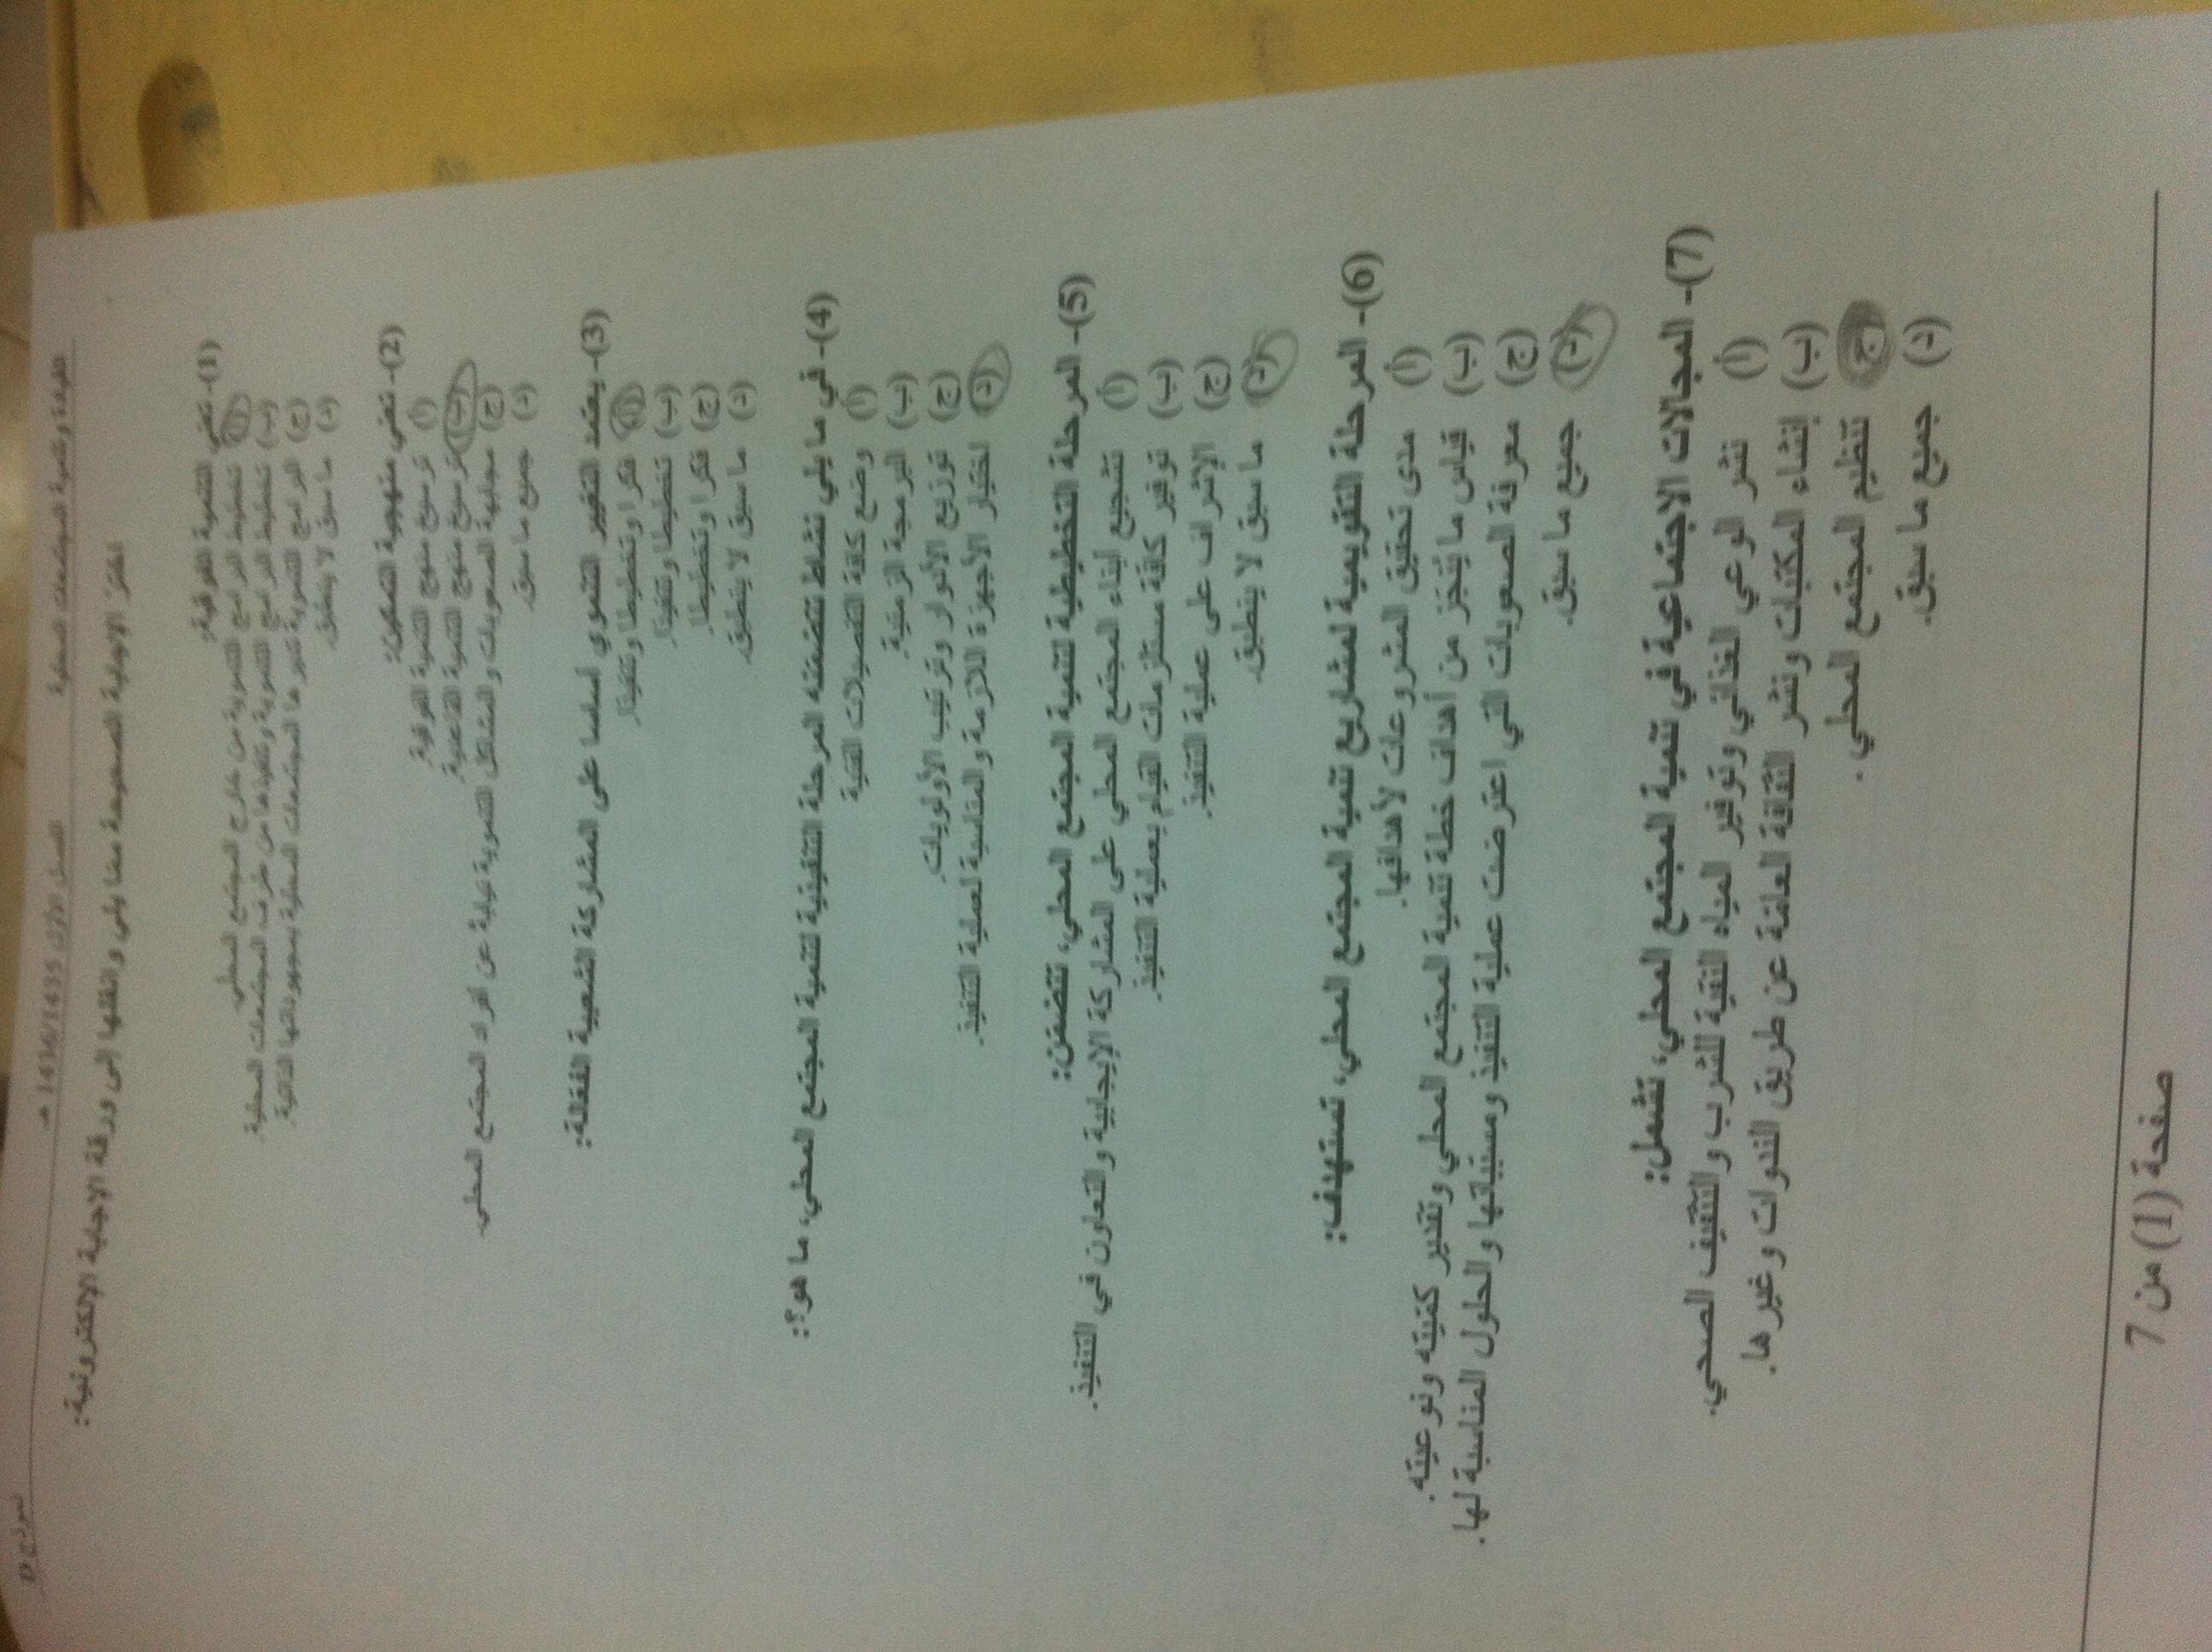 القيادة وتنمية المجتمعات المحلية
الفصل الأول 1436/1435 هـ
نموذج D
اختر الإجابة الصحيحة مما يلي وانقلها إلى ورقة الإجابة الإلكترونية:
(1)- تعني التنمية الفوقية:
(أ) تخطيط البرامج التنموية من خارج المجتمع المحلي
(ب) تخطيط البرامج التنموية وتنفيذها من طرف المجتمعات المحلية.
(ج) البرامج التنموية تديرها المجتمعات المحلية بمجهوداتها الذاتية.
(د) ما سبق لا ينطبق.
(2)- تعني منهجية التمكين:
(أ) ترسيخ منهج التنمية الفوقية.
(ب) ترسيخ منهج التنمية القاعدية.
(ج) مجابهة الصعوبات والمشاكل التنموية نيابة عن أفراد المجتمع المحلي.
(د) جميع ما سبق.
(3)- يعتمد التغيير التنموي أساسا على المشاركة الشعبية الفعّالة:
(أ) فكرا وتخطيطا وتنفيذا.
(ب) تخطيطا وتنفيذا.
(ج) فكرا وتخطيطا.
(د) ما سبق لا ينطبق.
(4)- في ما يلي نشاط تتضمّنه المرحلة التنفيذية لتنمية المجتمع المحلي، ما هو؟:
(أ) وضع كافة التفصيلات الفنية
(ب) البرمجة الزمنية.
(ج) توزيع الأدوار وترتيب الأولويات.
(د) اختيار الأجهزة اللازمة والمناسبة لعملية التنفيذ.
(5)- المرحلة التخطيطية لتنمية المجتمع المحلي، تتضمّن:
(أ) تشجيع أبناء المجتمع المحلي على المشاركة الإيجابية والتعاون في التنفيذ.
(ب) توفير كافة مستلزمات القيام بعملية التنفيذ.
(ج) الإشراف على عملية التنفيذ.
(د) ما سبق لا ينطبق.
(6)- المرحلة التقويمية لمشاريع تنمية المجتمع المحلي، تستهدف:
(أ) مدى تحقيق المشروعات لأهدافها.
(ب) قياس ما يُنجَز من أهداف خطة تنمية المجتمع المحلي وتقدير كميّته ونوعيّته.
(ج) معرفة الصعوبات التي اعترضت عملية التنفيذ ومسبّباتها والحلول المناسبة لها.
(د) جميع ما سبق.
(7)- المجالات الاجتماعية في تنمية المجتمع المحلي، تشمل:
(أ) نشر الوعي الغذائي وتوفير المياه النقية للشرب والتثقيف الصحي.
(ب) إنشاء المكتبات ونشر الثقافة العامّة عن طريق الندوات وغيرها.
(ج) تنظيم المجتمع المحلي.
(د) جميع ما سبق.
صفحة (1) من 7